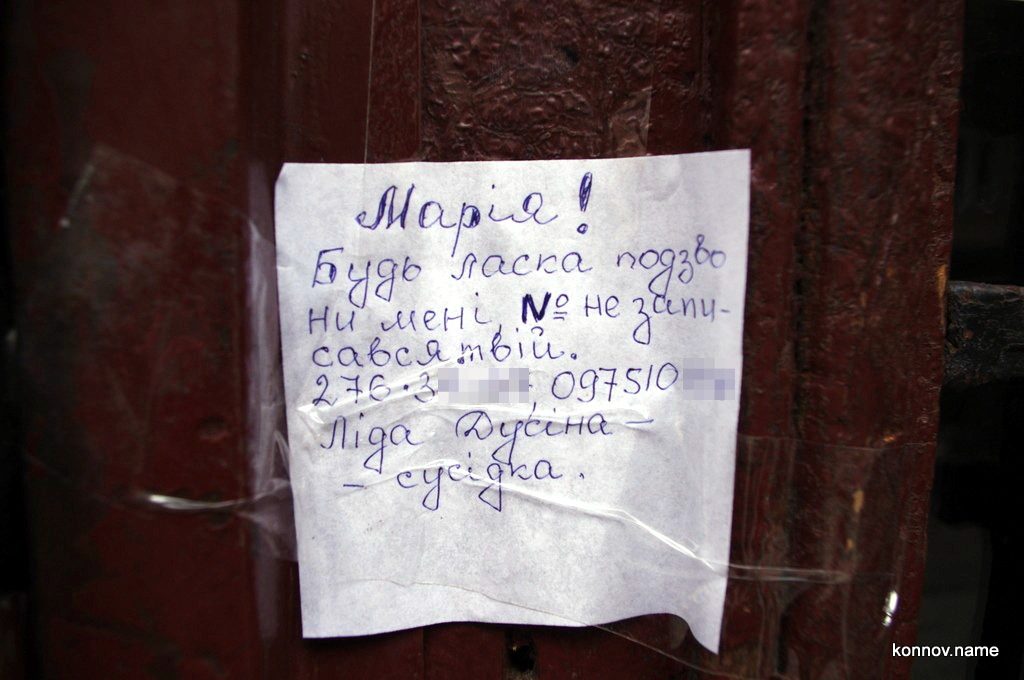 Марія!
Будь ласка подзво
ни мені, № не запи-
сався твій.
276·3 097510
Ліда Дусіна –
– сусідка.
konnov.name